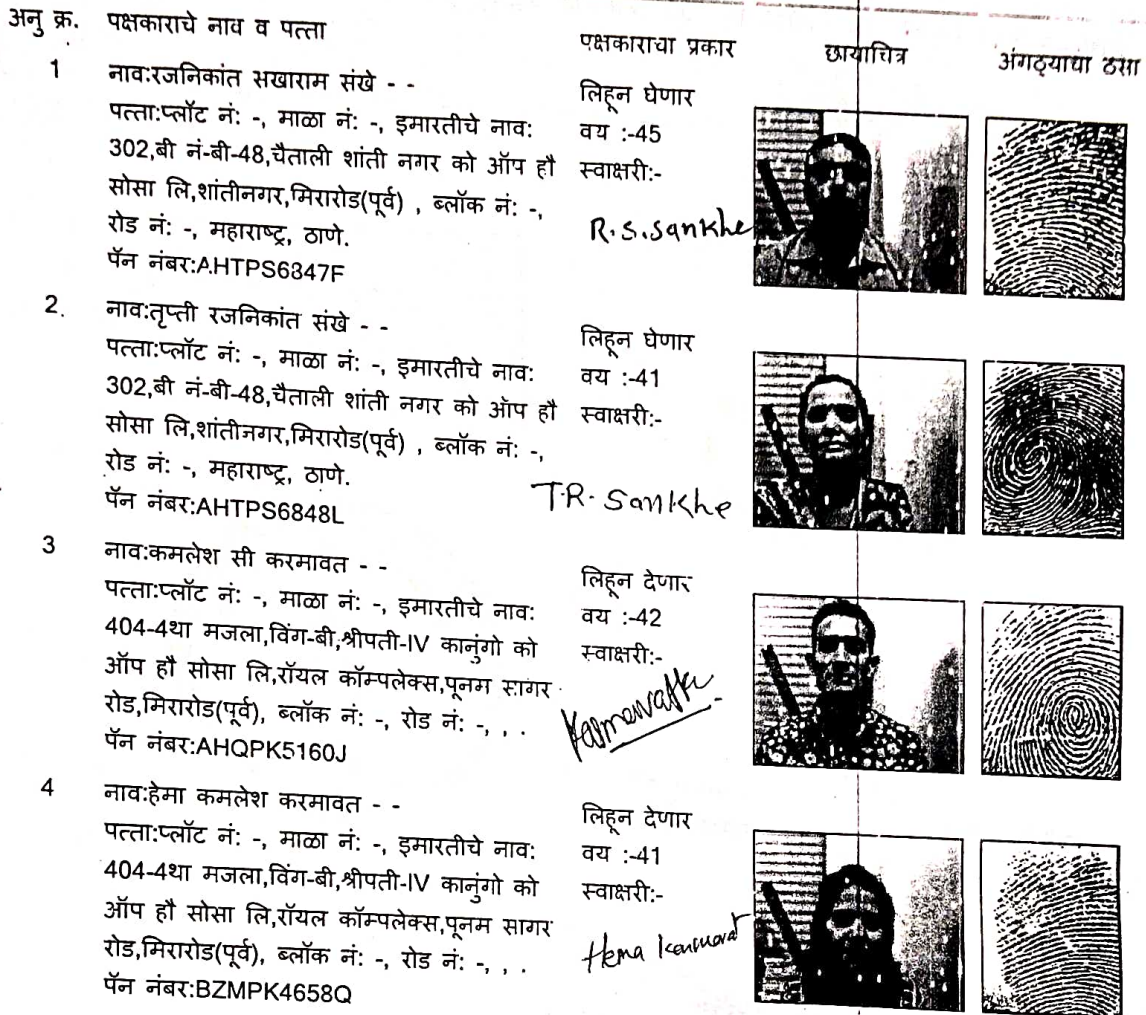 अनु क्र. पक्षकाराचे नाव व पत्ता पक्षकाराचा प्रकार छायाचित्र अंगठ्याचा ठसा
1 नाव:रजनिकांत सखाराम संखे - -
पत्ता:प्लॉट नं: -, माळा नं: -, इमारतीचे नाव:
302,बी नं-बी-48,चैताली शांती नगर को ऑप हौ
सोसा लि,शांतीनगर,मिरारोड(पूर्व) , ब्लॉक नं: -,
रोड नं: -, महाराष्ट्र, ठाणे.
पॅन नंबर:AHTPS6847F
लिहून घेणार
वय :-45
स्वाक्षरी:-
R.S.Sankhe
2. नाव:तृप्ती रजनिकांत संखे - -
पत्ता:प्लॉट नं: -, माळा नं: -, इमारतीचे नाव:
302,बी नं-बी-48,चैताली शांती नगर को ऑप हौ
सोसा लि,शांतीनगर,मिरारोड(पूर्व) , ब्लॉक नं: -,
रोड नं: -, महाराष्ट्र, ठाणे.
पॅन नंबर:AHTPS6848L
लिहून घेणार
वय :-41
स्वाक्षरी:-
T.R. Sankhe
3 नाव:कमलेश सी करमावत - -
पत्ता:प्लॉट नं: -, माळा नं: -, इमारतीचे नाव:
404-4था मजला,विंग-बी,श्रीपती-IV कानुंगो को
ऑप हौ सोसा लि,रॉयल कॉम्पलेक्स,पूनम सागर
रोड,मिरारोड(पूर्व), ब्लॉक नं: -, रोड नं: -, , .
पॅन नंबर:AHQPK5160J
लिहून देणार
वय :-42
स्वाक्षरी:-
4 नाव:हेमा कमलेश करमावत - -
पत्ता:प्लॉट नं: -, माळा नं: -, इमारतीचे नाव:
404-4था मजला,विंग-बी,श्रीपती-IV कानुंगो को
ऑप हौ सोसा लि,रॉयल कॉम्पलेक्स,पूनम सागर
रोड,मिरारोड(पूर्व), ब्लॉक नं: -, रोड नं: -, , .
पॅन नंबर:BZMPK4658Q
लिहून देणार
वय :-41
स्वाक्षरी:-
Hema